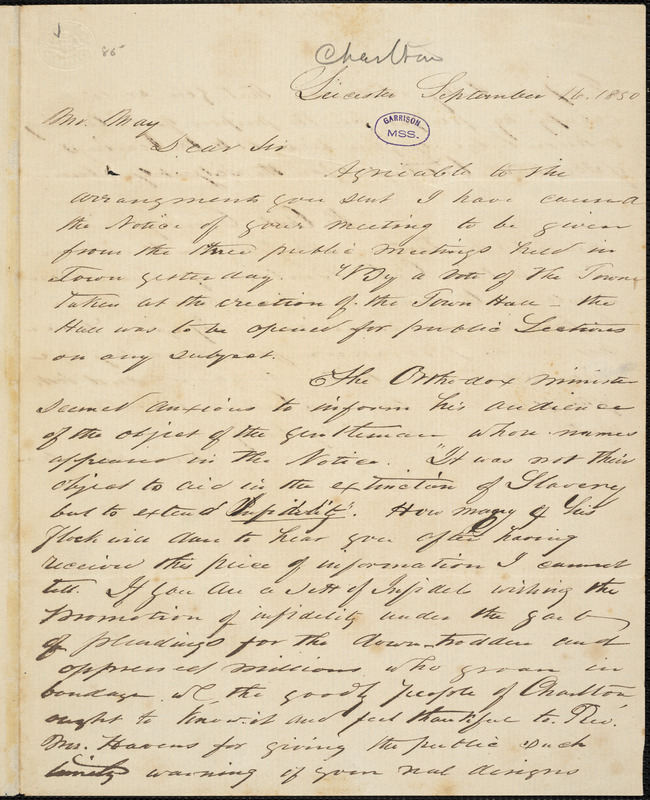 85
Charlton
Leicester September 16. 1850
GARRISON
MSS.
Mr. May
Dear Sir
Agreeable to the
arrangments you sent I have caused
the Notice of your meeting to be given
from the three public meetings held in
town yesterday. By a vote of the Town
taken at the erection of the Town Hall - the
Hall was to be opened for public Lectures
on any subject.
The Orthodox minister
seemed anxious to inform his audience
of the object of the gentlemen whose names
appeared in the Notice. "It was not their
object to aid in the extinction of Slavery
but to extend Infidelity". How many of his
flock will dare to hear you after having
received this piece of information I cannot
tell. If you are a sett of Infidels wishing the
promotion of infidelity under the garb
of pleadings for the down-trodden and
oppressed millions who groan in
bondage we the goodly people of Charlton
ought to know it and feel thankful to Rev.
Mr. Havens for giving the public such
timely warning of your real designs